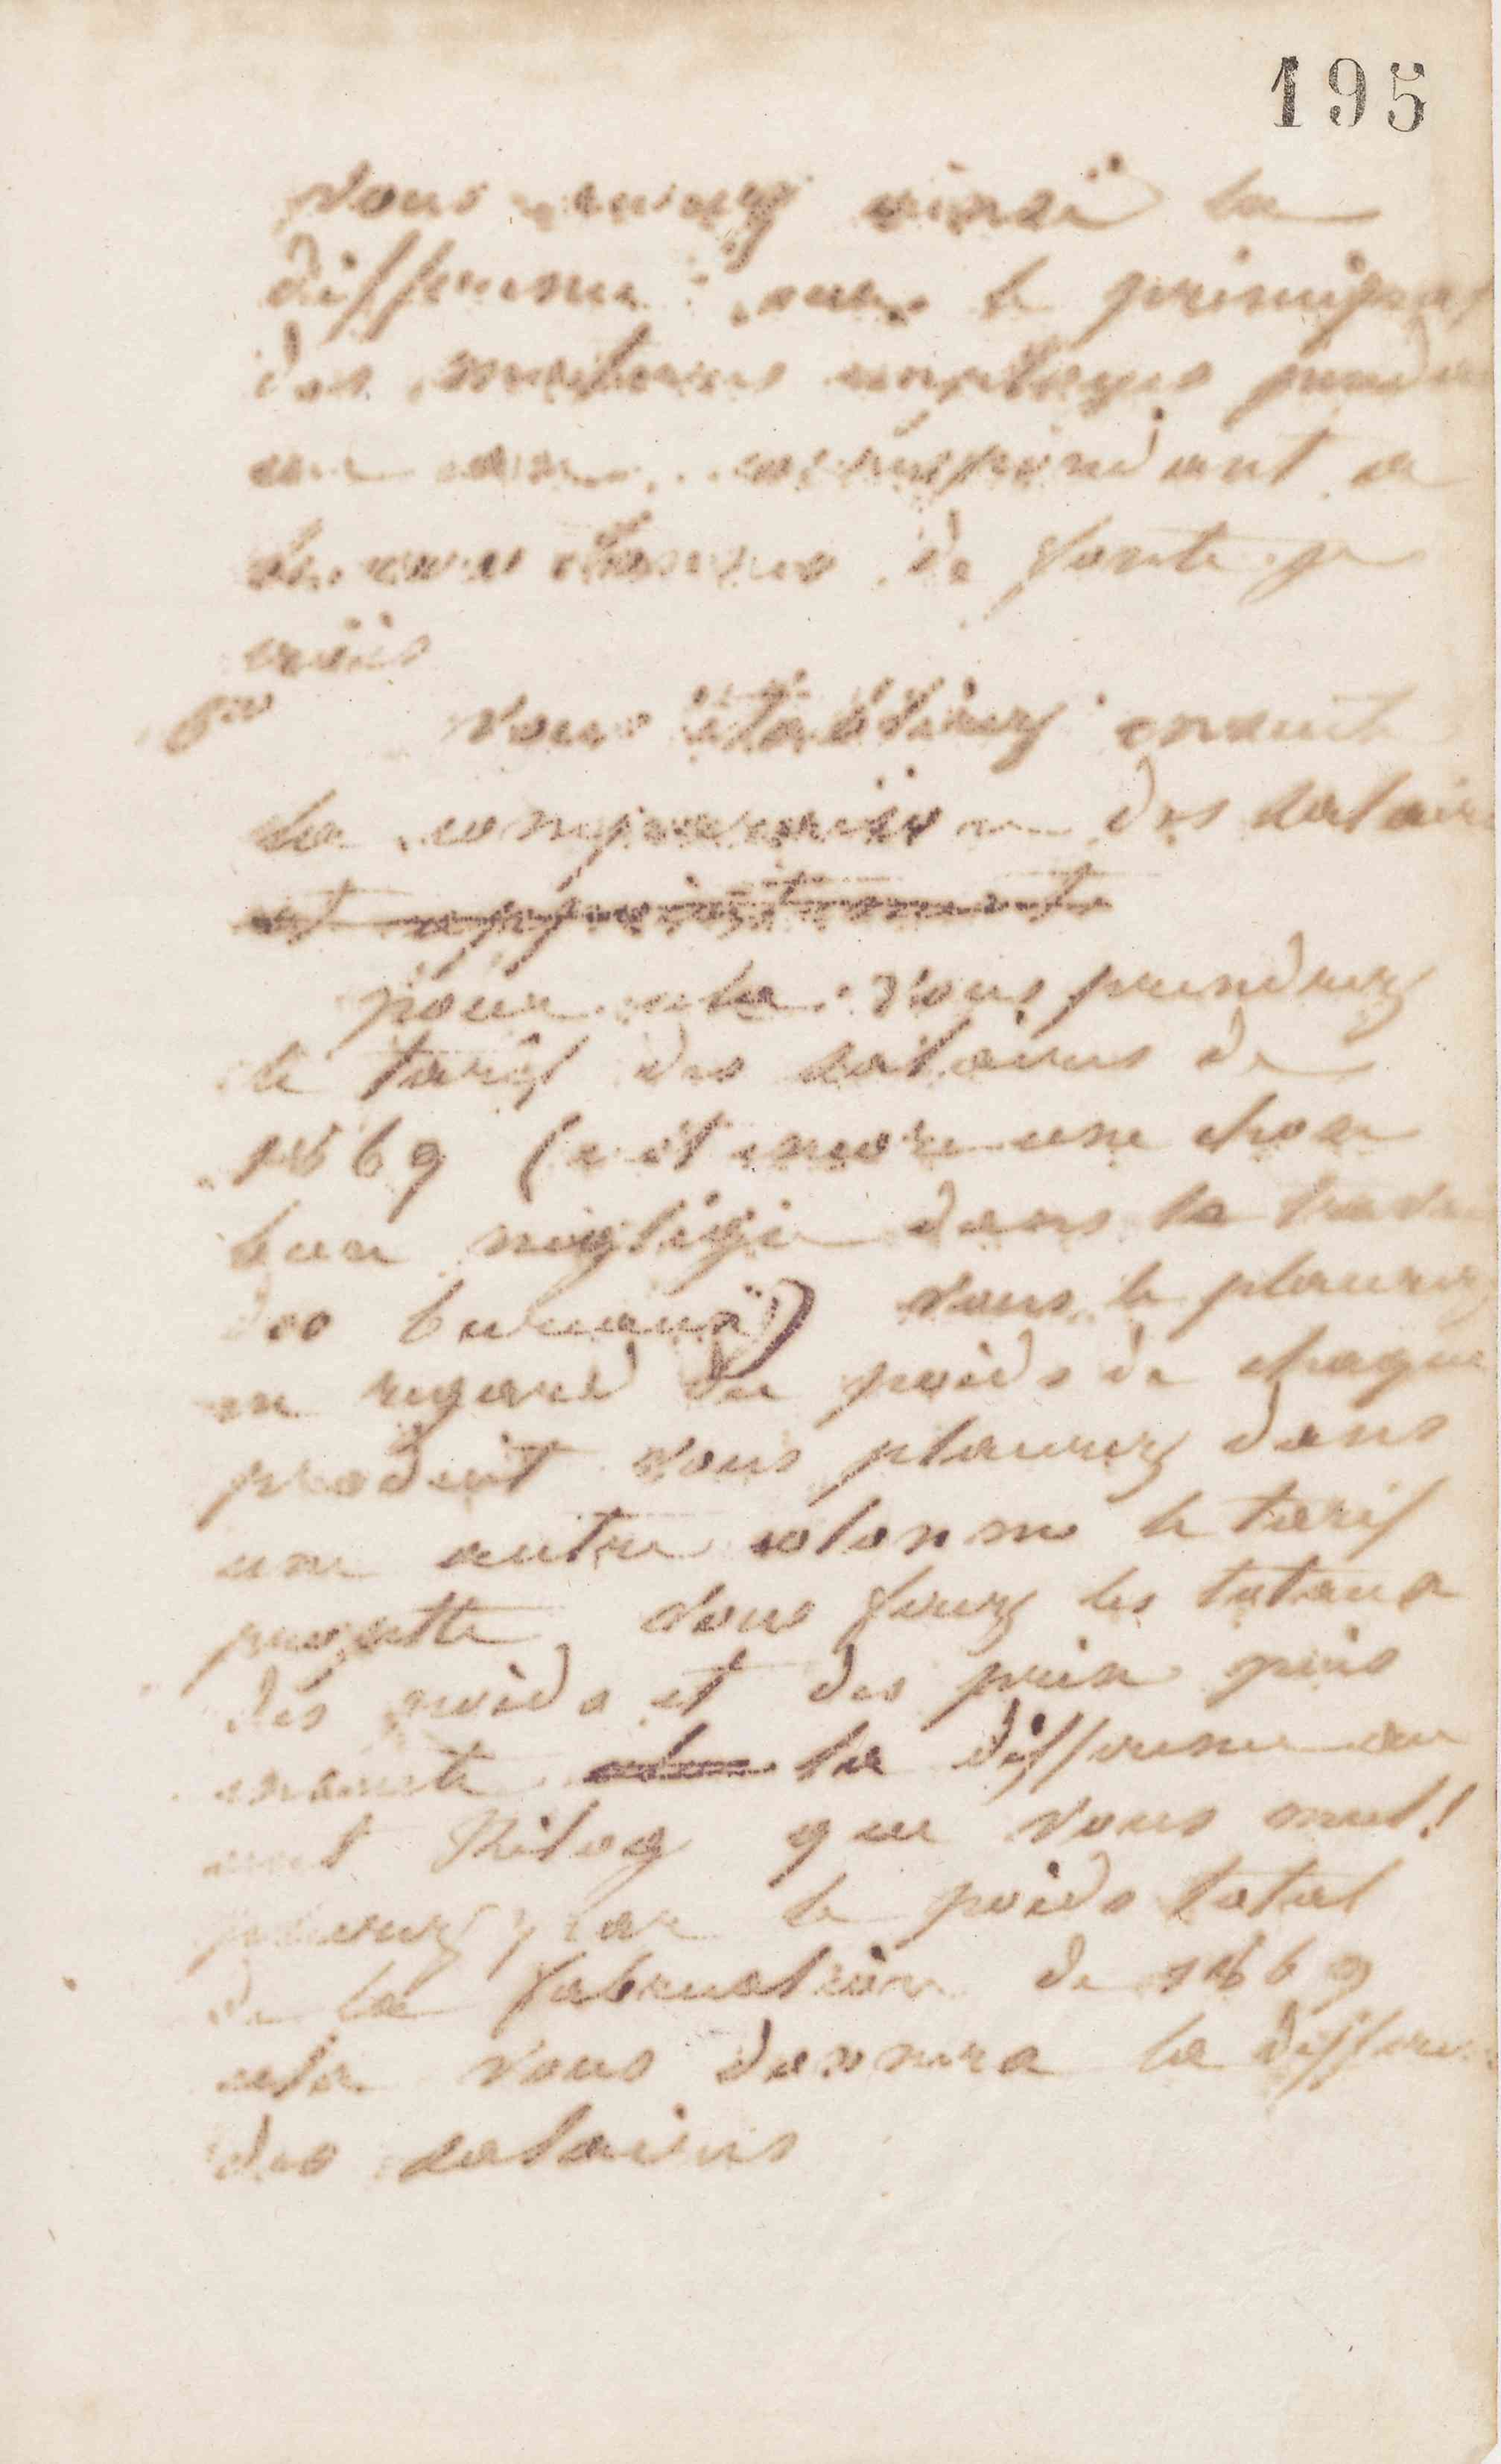 195
Vous aurez ainsi la
différence avec le principal
des matières employés
correspondant à
de fonte
6me
Vous établirez ensuite
la comparaison des salaires
et appointements
pour cela vous prendrez
le tarif des salaires de
1869 (c'est encore une chose
bien négligée dans le travail
des bureaux) vous le placerez
en regard du poids de chaque
produit vous placerez dans
une autre colonne le tarif
projetté, vous ferez les totaux
des poids et des prix puis
ensuite la différence au
cent Kilog que vous mul!
plierez par le poids total
de la fabrication de 1869
cela vous donnera la différence
des salaires